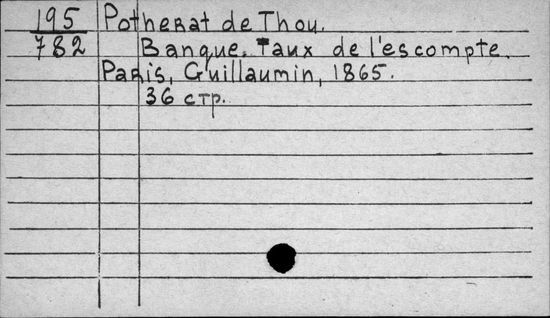 195 Potherat de Thou.
782 Banque. Taux de l'escompte.
Paris, Guillaumin, 1865.
36 стр.